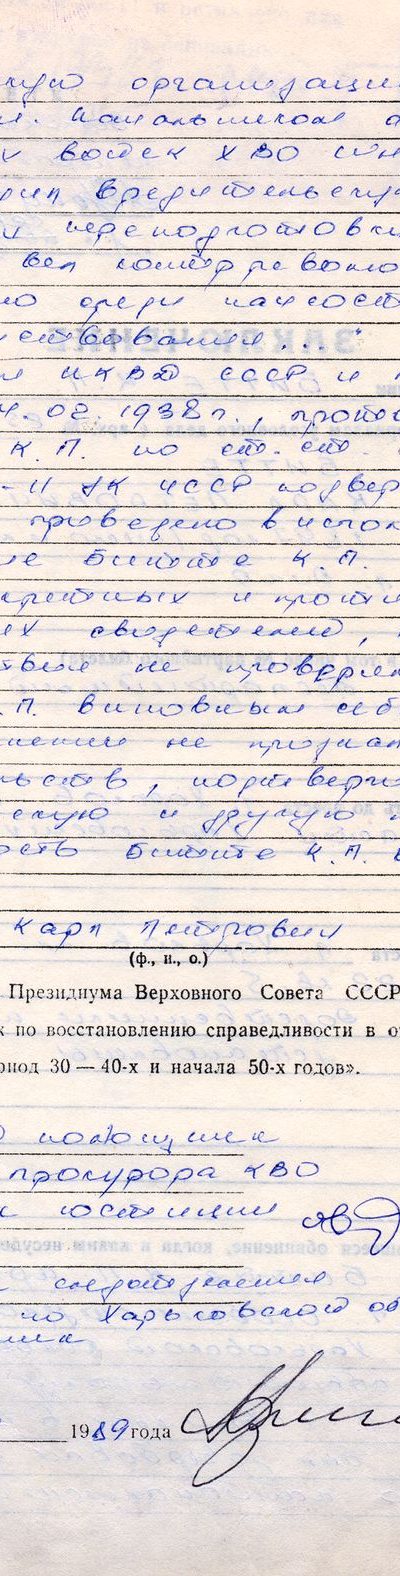 ную организаци
и. начальником а
х войск ХВО
рил вредительскую
и переподготовки
вел контрреволю
но среди начсост
ствования..."
и НКВД СССР и
4.02.1938г., прото
К.П. по ст. ст.
-11 УК УССР подвер
проведено в испол
ие Битте К.П.
и проти
ех свидетелей,
ствии не проверен
.П. виновным себ
не признал
льств, подтверж
скую и другую
ость Битте К.П.
Карл Петрович
(ф., и., о.)
Президиума Верховного Совета СССР
х по восстановлению справедливости в о
риод 30—40-х и начала 50-х годов».
помощник
прокурора КВО
юстиции
следотделения
по Харьковской об
1989 года